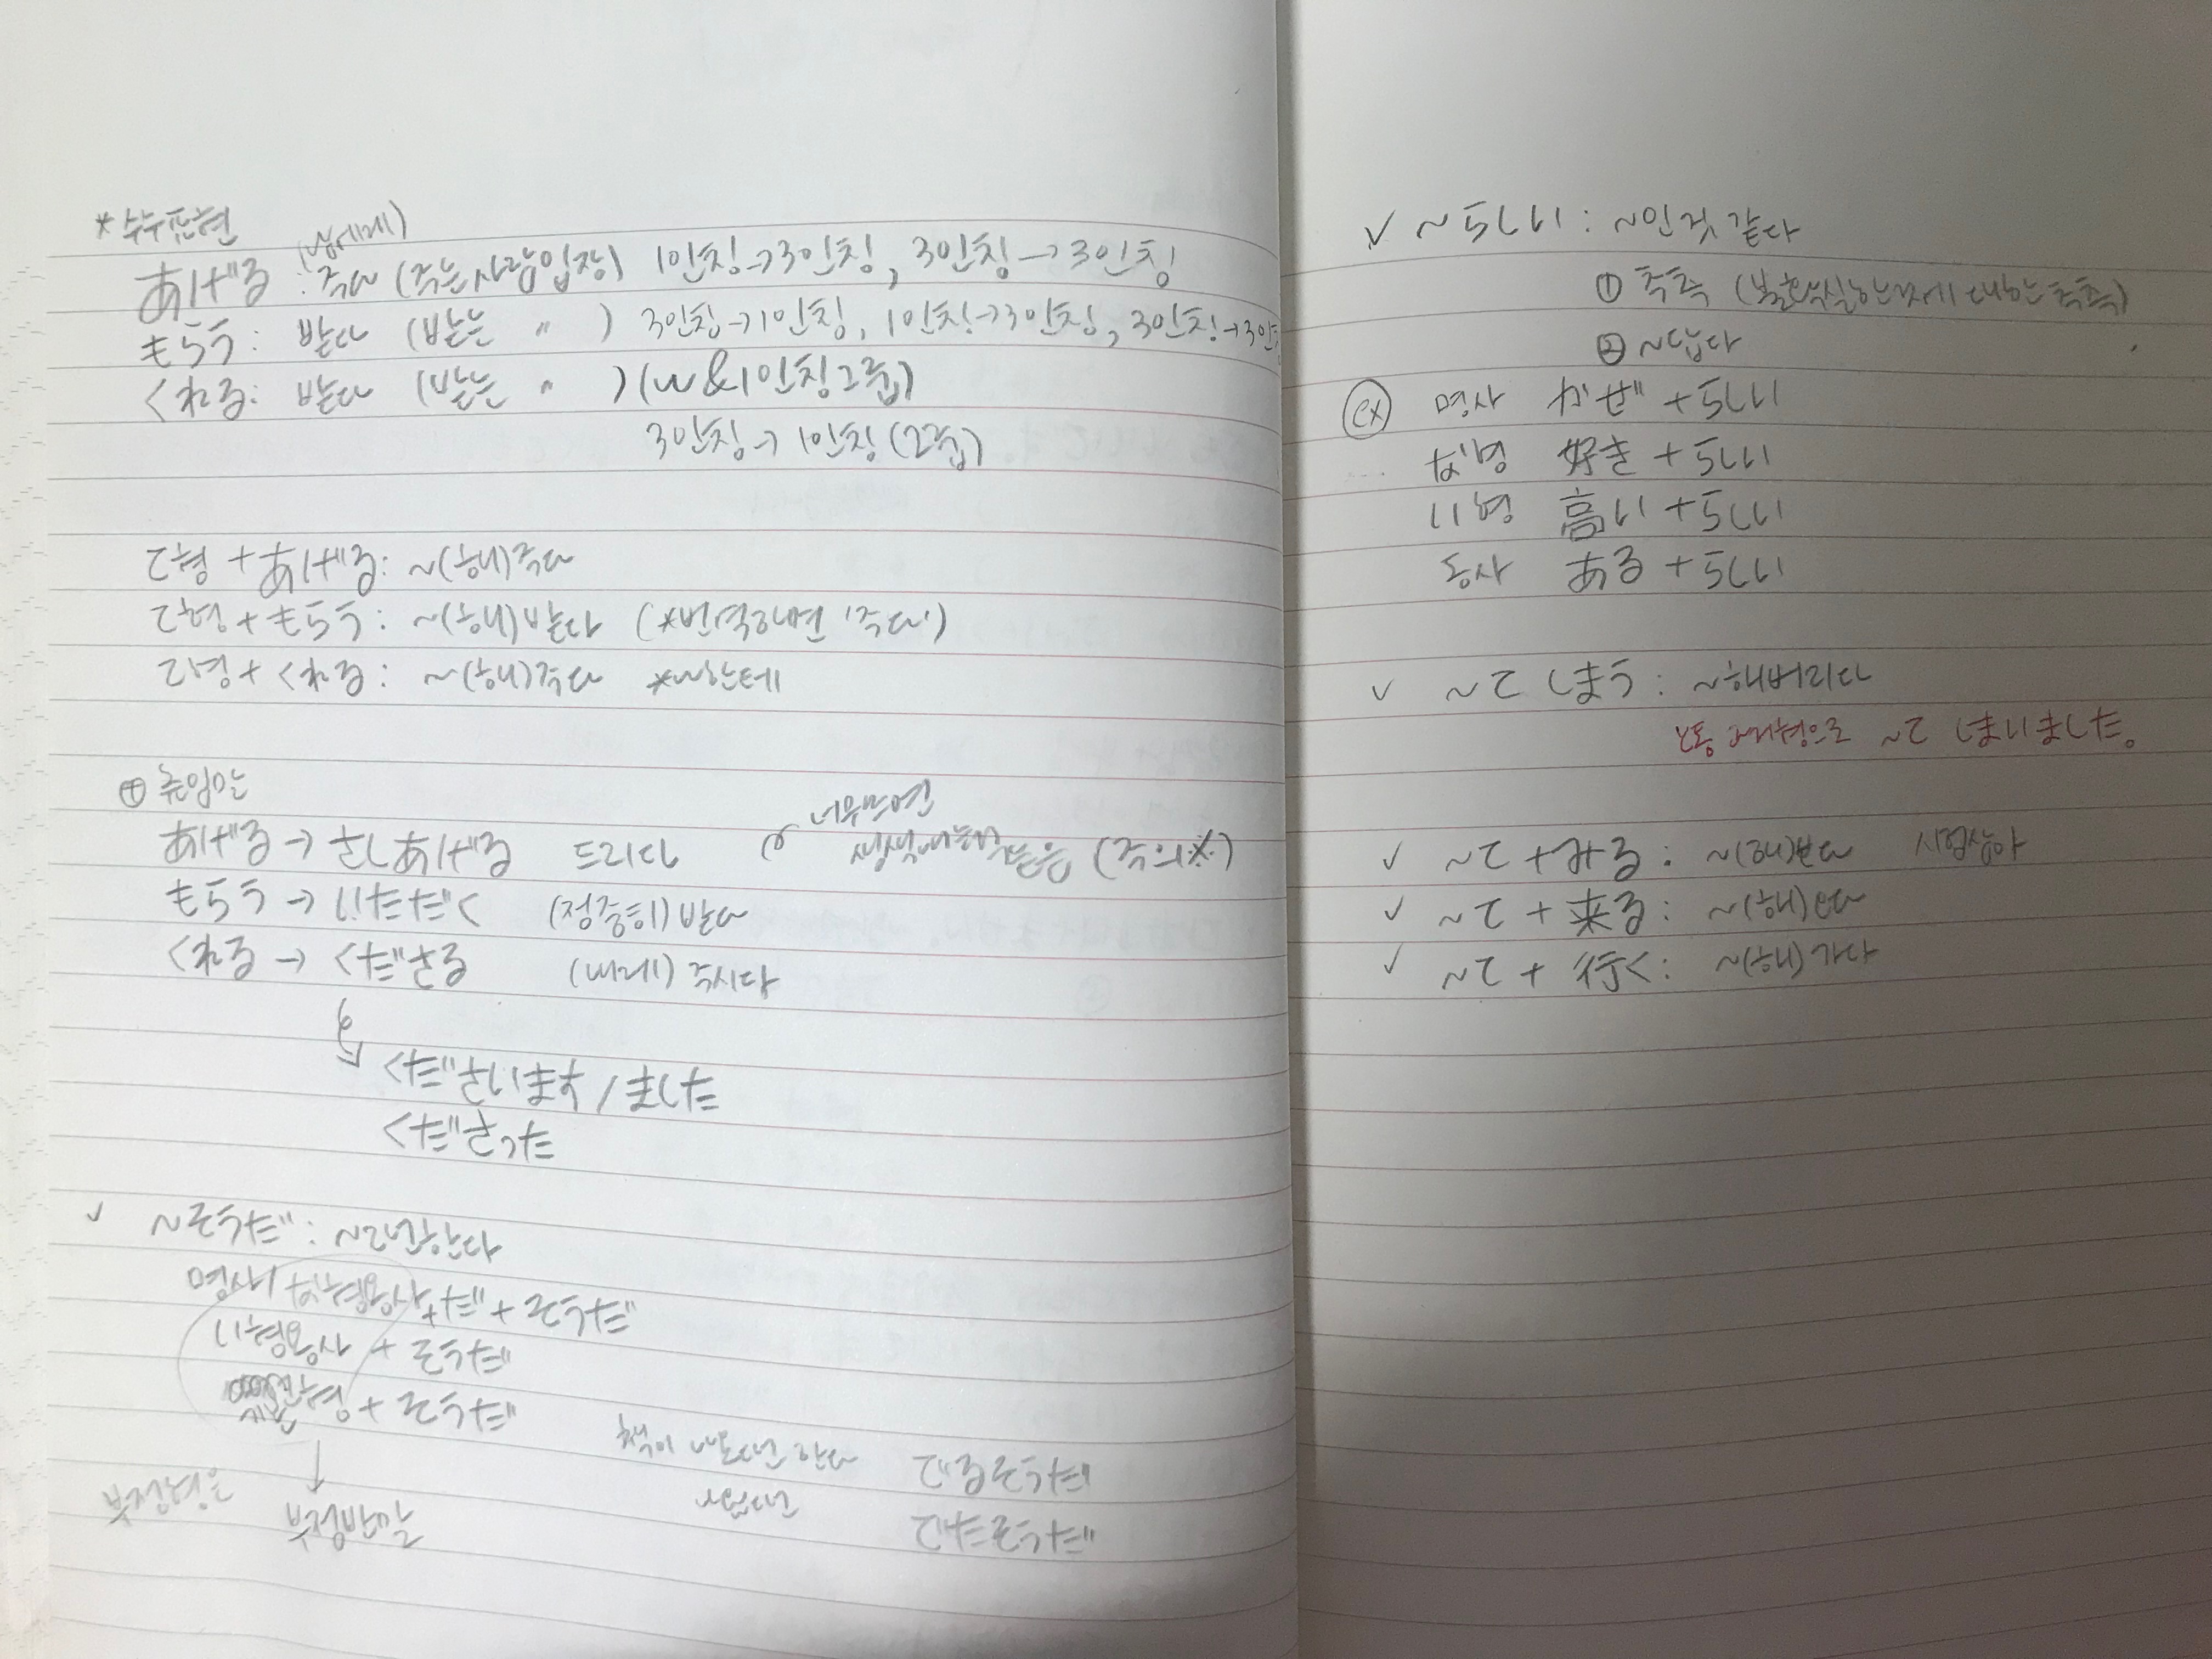 * 수수표현
(남에게)
あげる : 주다 (주는 사람 입장) 1인칭→3인칭, 3인칭→3인칭
もらう : 받다 (받는 〃 ) 3인칭→1인칭, 1인칭→3인칭, 3인칭→3인칭
くれる : 받다 (받는 〃 ) (나&1인칭그룹)
3인칭→1인칭(그룹)
て형 + あげる : ~(해)주다
て형 + もらう : ~(해)받다 (*번역하면 '주다')
て형 + くれる : ~(해)주다 *나한테
⊕ 높임말
あげる → さしあげる 드리다
너무쓰면
생색내는것 같음 (주의※)
もらう → いただく (정중히) 받다
くれる → くださる (나에게) 주시다
くださいます / ました
くださった
✓ ~そうだ : ~라고한다
명사/な형용사+だ + そうだ
い형용사 + そうだ
형 + そうだ
부정형은
부정반말
책이 나온다고 한다 でるそうだ
나왔다고 でたそうだ
✓ ~らしい : ~인것 같다
① 추측 (불확실한것에 대한 추측)
② ~답다
ex 명사 かぜ + らしい
な형 好き + らしい
い형 高い + らしい
동사 ある + らしい
✓ ~て しまう : ~해버리다
보통 과거형으로 ~て しまいました。
✓ ~て + みる : ~(해)보다 시험삼아
✓ ~て + 来る : ~(해)오다
✓ ~て + 行く : ~(해)가다